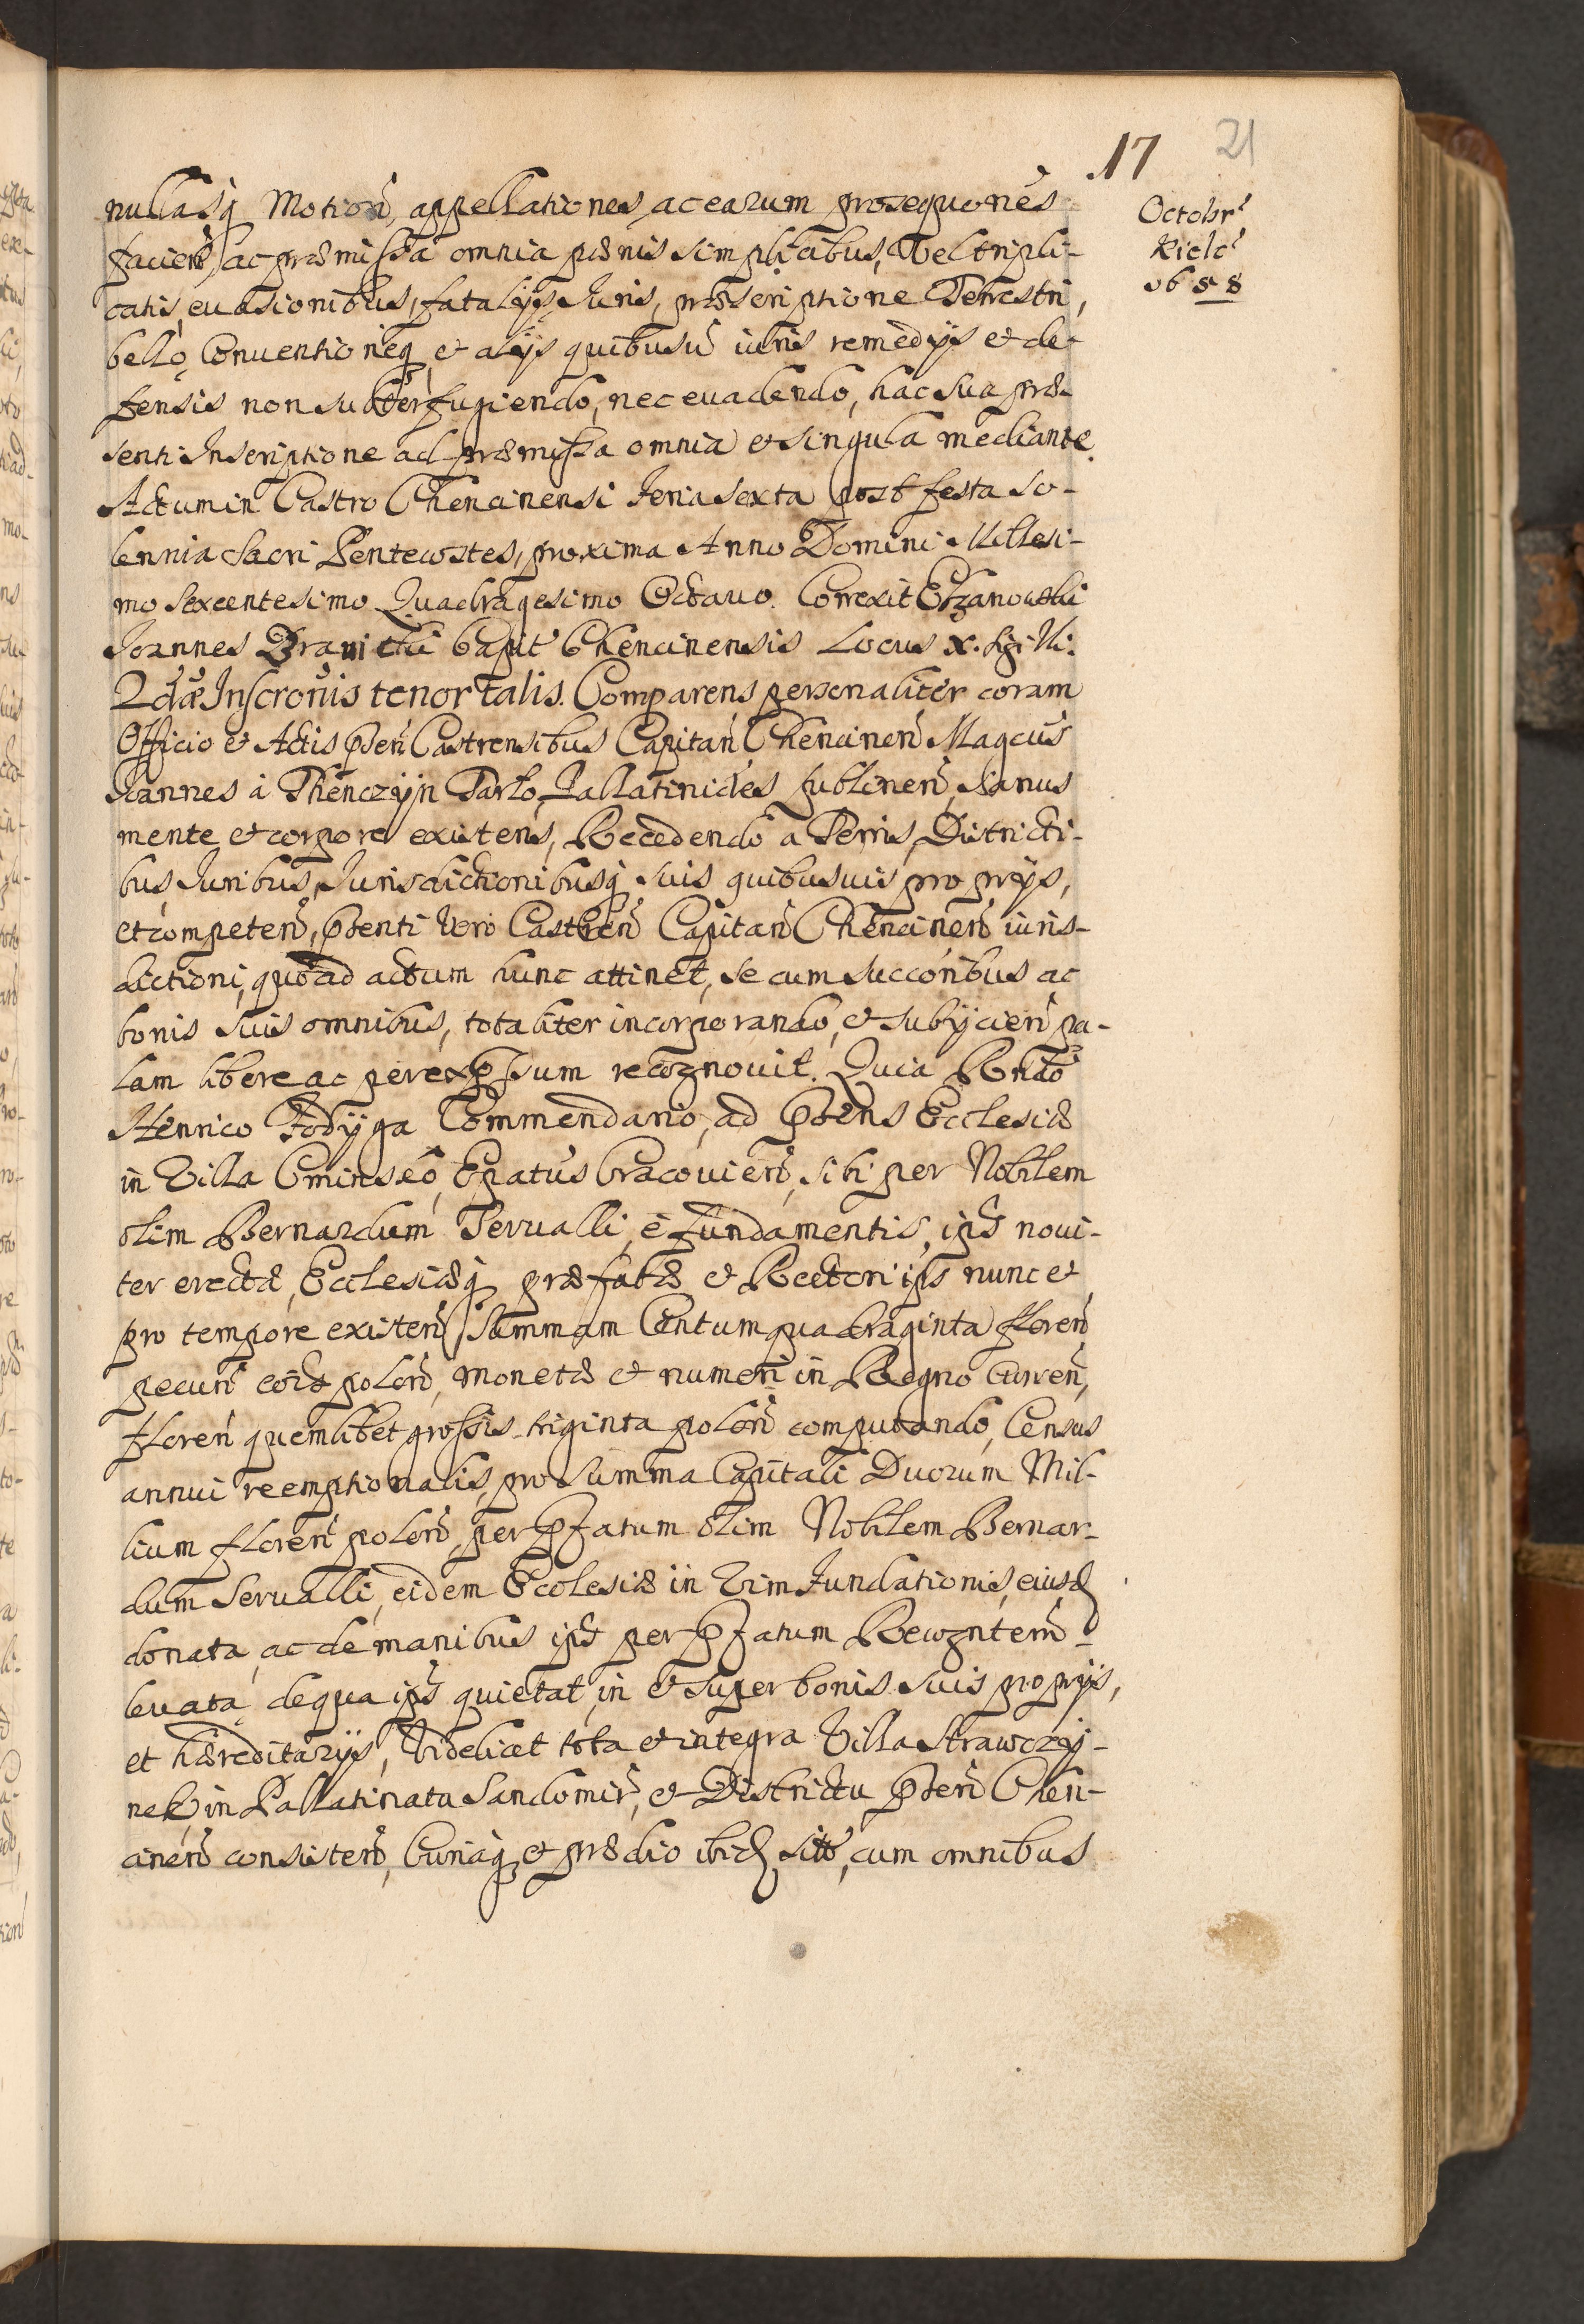 17 21
Octobr
Kielc
1658
nullasq Motion, appellationes, ac earum prosequones
facien, ac præmissa omnia pænis simplicibus, Vel tripli-
catis, euasionibus, fatalijs Juris, præscriptione Terrestri,
bello, Conuentioneq et alijs quibusuis iuris remedijs et de-
fensis non subterfugiendo, nec euadendo, hac sua præ-
senti Inscriptione ad præmissa omnia et singula mediante.
Actum in Castro Chencinensi feria sexta post festa so-
lennia Sacri Pentecostes, proxima Anno Domini Millesi-
mo Sexcentesimo Quadragesimo Octauo. Correxit
Joannes Capit Chencinensis Locus x. sigilli.
2dæ Inscronis tenor talis. Comparens personaliter coram
Officio et Actis pnten Castrensibus Capitan Chencinen Magcus
Joannes à Thenczijn Tarlo, Pallatinides Lublinen, sanus
mente et corpore existens, Recedendo a Terris, Districti-
bus, Juribus, Jurisdictionibusq suis quibusuis proprijs,
et competen, pntenti vero Castren Capitan Chencinen iuris-
dictioni, quo ad actum hunc attinet, se cum succoribus ac
bonis suis omnibus, totaliter incorporando, et subijcien pa-
lam libere ac per expssum recognouit. Quia Rndo
Henrico Fodyga Commendario, ad pntens Ecclesiæ
in Villa Cminsko, Epatus Cracouien, sibi per Nobilem
olim Bernardum Serualli, è fundamentis, ipd noui-
ter erectæ, Ecclesiæq præfatæ et Rectori ips nunc et
pro tempore existen, Summam Centum quadraginta floren
pecun coie polon, monetæ et numeri in Regno curren,
floren quemlibet grossis triginta polon computando, Census
annui reemptionalis, pro summa Capitali Duorum Mil-
lium floren polon, per pfatum olim Nobilem Bernar-
dum Serualli, eidem Ecclesiæ in Vim fundationis, eiusd
donata, ac de manibus ipd per pfatum Recognitem
leuata, de qua ips quietat, in et super bonis suis proprijs,
et hæreditarijs, Videlicet tota et integra Villa Strawczy-
nek, in Pallatinatu Sandomir, et Districtu pnten Chen-
cinen consisten, Curiaq et prædio ibid, sitt, cum omnibus